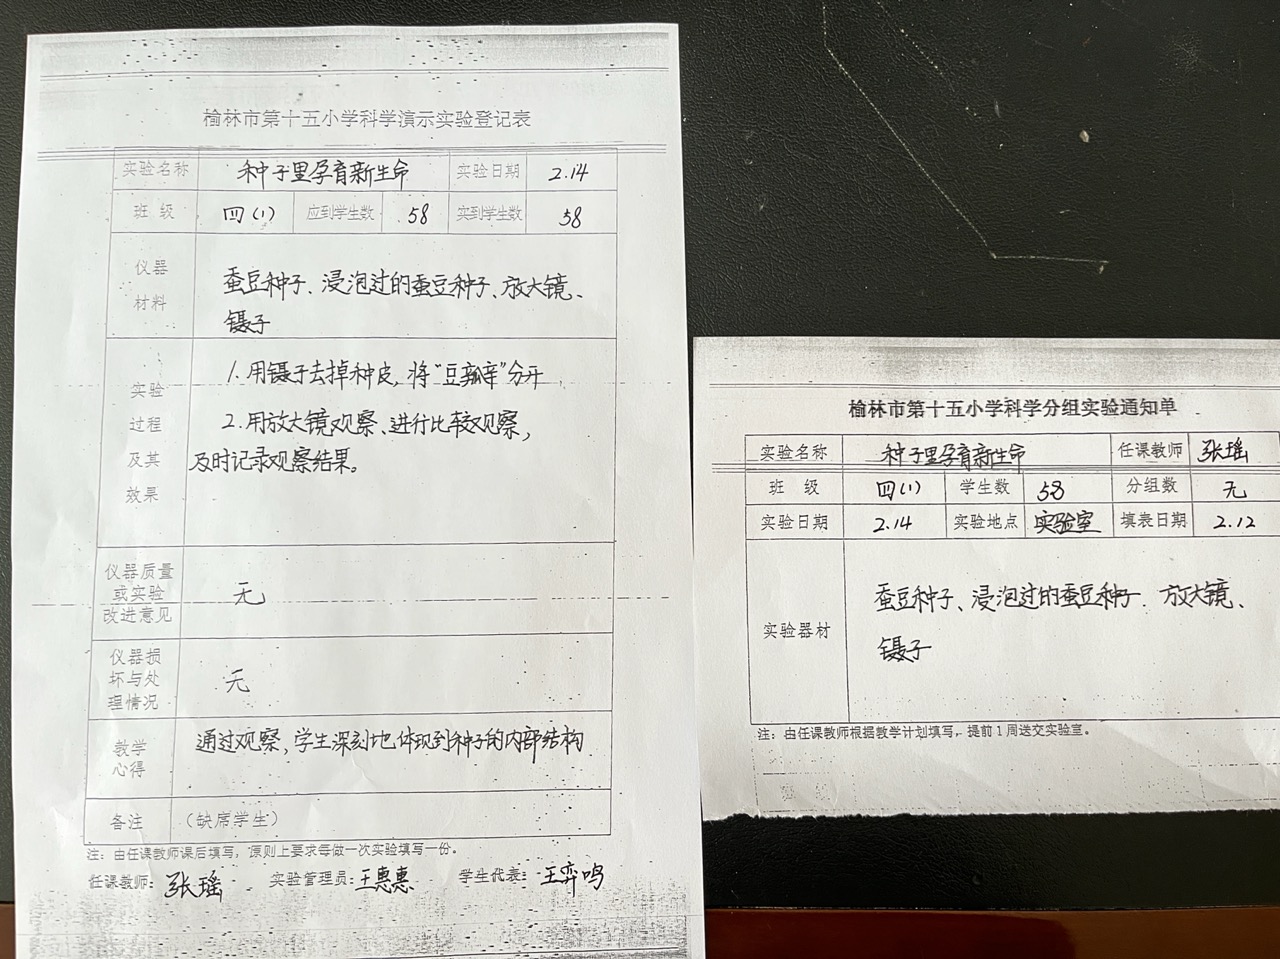 榆林市第十五小学科学演示实验登记表
实验名称 种子里孕育新生命 实验日期 2.14
班 级 四(1) 应到学生数 58 实到学生数 58
仪器
材料
蚕豆种子、浸泡过的蚕豆种子、放大镜、
镊子
实验
过程
及其
效果
1.用镊子去掉种皮,将“豆瓣”分开
2.用放大镜观察、进行比较观察,
及时记录观察结果。
仪器质量
或实验
改进意见
无
仪器损
坏与处
理情况
无
教学
心得
通过观察,学生深刻地体现到种子的内部结构
备注 （缺席学生）
注：由任课教师课后填写，原则上要求每做一次实验填写一份。
任课教师：张瑶 实验管理员：王惠惠 学生代表：王弈鸣
榆林市第十五小学科学分组实验通知单
实验名称 种子里孕育新生命 任课教师 张瑶
班 级 四(1) 学生数 58 分组数 无
实验日期 2.14 实验地点 实验室 填表日期 2.12
实验器材
蚕豆种子、浸泡过的蚕豆种子、放大镜、
镊子
注：由任课教师根据教学计划填写，提前1周送交实验室。